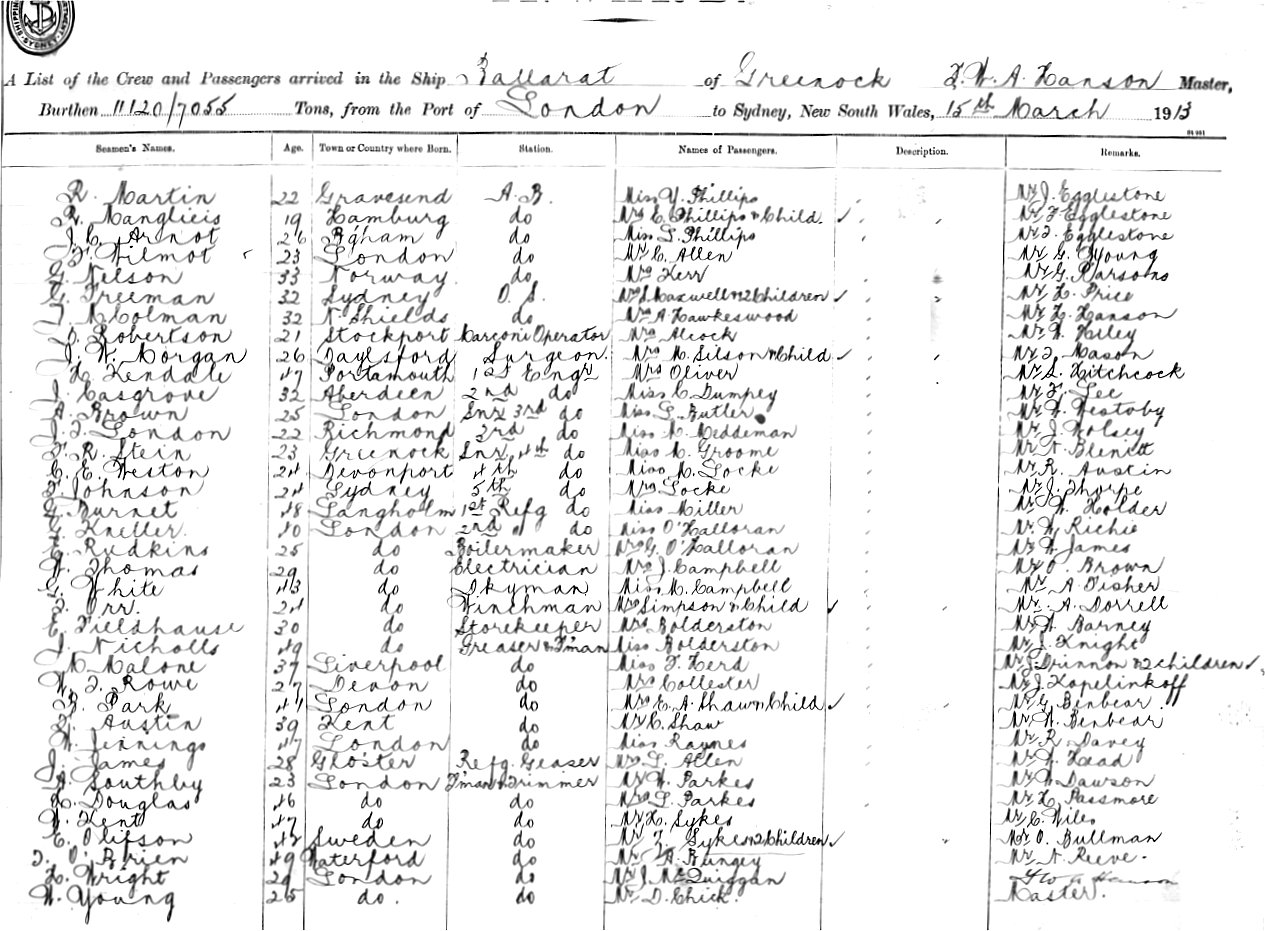 A List of the Crew and Passengers arrived in the Ship Ballarat of Greenock F. W. A. Hanson Master,
Burthen 11120/7055 Tons, from the Port of London to Sydney, New South Wales, 15th March 1913
Seamen's Names. Age. Town or Country where Born. Station. Names of Passengers. Description. Remarks.
R. Martin 22 Gravesend A.B. Miss Y. Phillips Mr J. Egglestone
R. 19 Hamburg do Mrs C. Phillips & Child Mr F. Egglestone
J. C. Arnot 26 do Miss L. Phillips Mr J. Egglestone
F. Wilmot 23 London do Mr C. Allen Mr G. Young
G. Nelson 33 Norway do Mrs Kerr Mr G. Parsons
G. Freeman 32 Sydney O.S. Mrs S. Maxwell & 2 Children Mr H. Price
T. McColman 32 N. Shields do Mrs A. Hawkeswood Mr H. Hanson
J. Robertson 21 Stockport Marconi Operator Mrs Alcock Mr W. Hiley
J. W. Morgan 26 Daylsford Surgeon. Mrs M. Silson & Child Mr J. Mason
H. Kendale 47 Portsmouth 1st Engr Mrs Oliver Mr S. Hitchcock
J. Casgrove 32 Aberdeen 2nd do Miss C. Dumpey Mr F. Lee
A. Brown 25 London Snr 3rd do Miss L. Butler Mr W. Westoby
J. F. London 22 Richmond 3rd do Miss M. Meddeman Mr J. Wolsey
F. R. Stein 23 Greenock Snr 4th do Miss M. Groome Mr N. Blenett
C. E. Weston 24 Devonport 4th do Miss M. Locke Mr R. Austin
F. Johnson 24 Sydney 5th do Mrs Locke Mr J. Thorpe
G. Burnet 48 Langholm 1st Refg do Miss Miller Mr W. Holder
Kneller. 40 London 2nd " do Miss O'Halloran Mr H. Richie
G. Rudkins 25 do Boilermaker Mrs G. O'Halloran Mr W. James
W. Thomas 29 do Electrician Mrs J. Campbell Mr O. Brown
White 43 do Miss M. Campbell Mr A. Fisher
Orr. 24 do Winchman Mrs Simpson & Child Mr. A. Dorrell
E. Fieldhause 30 do Storekeeper Mrs Bolderston Mr W. Barney
J. Nicholls 49 do Greaser & F'man Miss Bolderston Mr J. Knight
M. Malone 37 Liverpool do Miss F. Herd Mr J. Drinnon & 2 children
W. J. Rowe 27 Devon do Mrs Collester Mr J. Kopelinkoff
F. Park 44 London do Mrs E. A. Shaw & Child Mr G. Benbear
H. Austin 39 Kent do Mr C. Shaw Mr W. Benbear
W. Jennings 47 London do Miss Raynes Mr R. Davey
J. James 28 Gloster Refg. Geaser Mrs L. Allen Mr W. Head
A. Southby 23 London F'man & Trimmer Mr W. Parkes Mr W. Dawson
H. Douglas 46 do do Mrs L. Parkes Mr H. Passmore
W. Kent 47 do do Mr H. Sykes Mr C. Wiles
E. Olifson 42 Sweden do Mr F. Sykes & 2 Children Mr O. Bullman
J. O'Brien 49 Waterford do Mr A. Bungey Mr N. Reeve.
H. Wright 29 London do Mr J. McQuiggan Hanson
W. Young 25 do. do Mr D. Chick. Master.